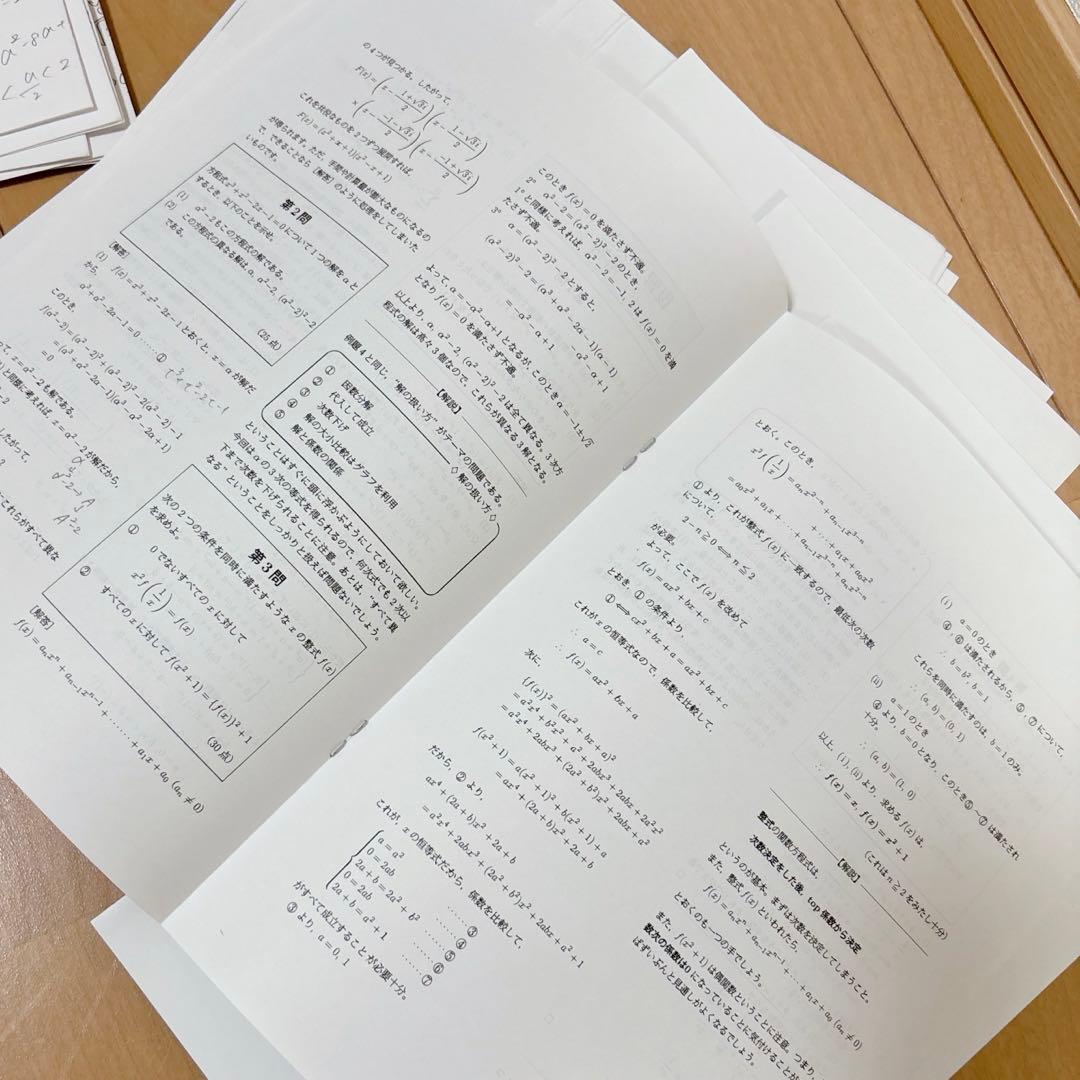 の4つが見つかる。したがって、
F(x)=(x-\frac{1+\sqrt{3}i}{2})(x-\frac{1-\sqrt{3}i}{2})
×(x-\frac{-1-\sqrt{3}i}{2})(x-\frac{-1+\sqrt{3}i}{2})
これを共役なものを2つずつ展開すれば、
が得られます。ただ、手間や計算量が膨大なものになるの
で、できることなら【解答】のように処理をしてしまいた
いものです。
第2問
方程式x³+x²-2x-1=0について1つの解をαと
するとき、以下のことを示せ。
(1) α²-2もこの方程式の解である。
(2) この方程式の異なる解は、α, α²-2, (α²-2)²-2
である。
(25点)
[解答]
(1) f(x)=x³+x²-2x-1とおくと、x=αが解だ
から、
α³+α²-2α-1=0 ……①
このとき、
f(α²-2)=(α²-2)³+(α²-2)²-2(α²-2)-1
=(α³+α²-2α-1)(α³-α²-2α+1)
=0
x=α²-2も解である。
と同様に考えれば、x=α²-2が解だから、
したがって、
これらがすべて異な
このときf(x)=0を満たさず不適。
2° α²-2=(α²-2)²-2のとき、
1°と同様に考えれば、α²-2=-1, 2はf(x)=0を満
たさず不適。
3° α=(α²-2)²-2とすると、
(α²-2)²-2=(α³+α²-2α-1)(α-1)
+α²-α+1
=α²-α+1
よって、α=α²-α+1となるが、このときα=1
となりf(x)=0を満たさず不適。
以上より、α, α²-2, (α²-2)²-2は全て異なる。3次方
程式の解は高々3個なので、これらが異なる3解となる。
【解説】
例題4と同じ、"解の扱い方"がテーマの問題である。
◇解の扱い方◇
① 因数分解
② 代入して成立
③ 次数下げ
④ 解の大小比較はグラフを利用
⑤ 解と係数の関係
ということはすぐに頭に浮かぶようにしておいて欲しい。
今回はαの3次の等式を得られるので、何次式でも2次以
下まで次数を下げられることに注意。あとは、"すべて異
なる"ということをしっかりと扱えば問題ないでしょう。
第3問
次の2つの条件を同時に満たすようなxの整式f(x)
を求めよ。
① 0でないすべてのxに対して
x²f(\frac{1}{x})=f(x)
② すべてのxに対してf(x²+1)={f(x)}²+1
(30点)
[解答]
f(x)=aₙxⁿ+aₙ₋₁xⁿ⁻¹+……+a₁x+a₀ (aₙ≠0)
とおく。このとき、
x²f(\frac{1}{x})=aₙx²⁻ⁿ+aₙ₋₁x³⁻ⁿ
+……+a₁x+a₀x²
=a₀x²+a₁x+……+aₙ₋₁x³⁻ⁿ+aₙx²⁻ⁿ
①より、これが整式f(x)に一致するので、最低次の次数
について、
2-n≧0⟺n≦2
が必要。
よって、ここでf(x)を改めて
f(x)=ax²+bx+c
とおき、①の条件より、
①⟺cx²+bx+a=ax²+bx+c
これがxの恒等式なので、係数を比較して、
a=c
∴ f(x)=ax²+bx+a
次に、
{f(x)}²=(ax²+bx+a)²
=a²x⁴+b²x²+a²+2abx³+2abx+2a²x²
=a²x⁴+2abx³+(2a²+b²)x²+2abx+a²
f(x²+1)=a(x²+1)²+b(x²+1)+a
=ax⁴+(2a+b)x²+2a+b
だから、②より、
ax⁴+(2a+b)x²+2a+b
=a²x⁴+2abx³+(2a²+b²)x²+2abx+a²+1
これが、xの恒等式だから、係数を比較して、
a=a² ……③
0=2ab ……④
2a+b=2a²+b² ……⑤
0=2ab ……⑥
2a+b=a²+1 ……⑦
がすべて成立することが必要十分。
③より、a=0, 1
(i) a=0のとき
④, ⑥は満たされるから、⑤, ⑦について、
∴ b=b², b=1
これらを同時に満たすのは、b=1のみ。
∴ (a, b)=(0, 1)
(ii) a=1のとき
④より、b=0となり、このとき⑤~⑦は満たされ
十分。
∴ (a, b)=(1, 0)
以上、(i), (ii)より、求めるf(x)は、
f(x)=x, f(x)=x²+1
【解説】
整式の関数方程式は、
次数決定をした後、top係数から決定
というのが基本。まずは次数を決定してしまうこと。
また、整式f(x)といわれたら、
f(x)=aₙxⁿ+aₙ₋₁xⁿ⁻¹+……+a₁x+a₀ (aₙ≠0)
とおくのも一つの手でしょう。
また、f(x²+1)は偶関数ということに注意。つまり、
数次の係数は0になっていることに気付けることが
ばずいぶんと見通しがよくなるでしょう。